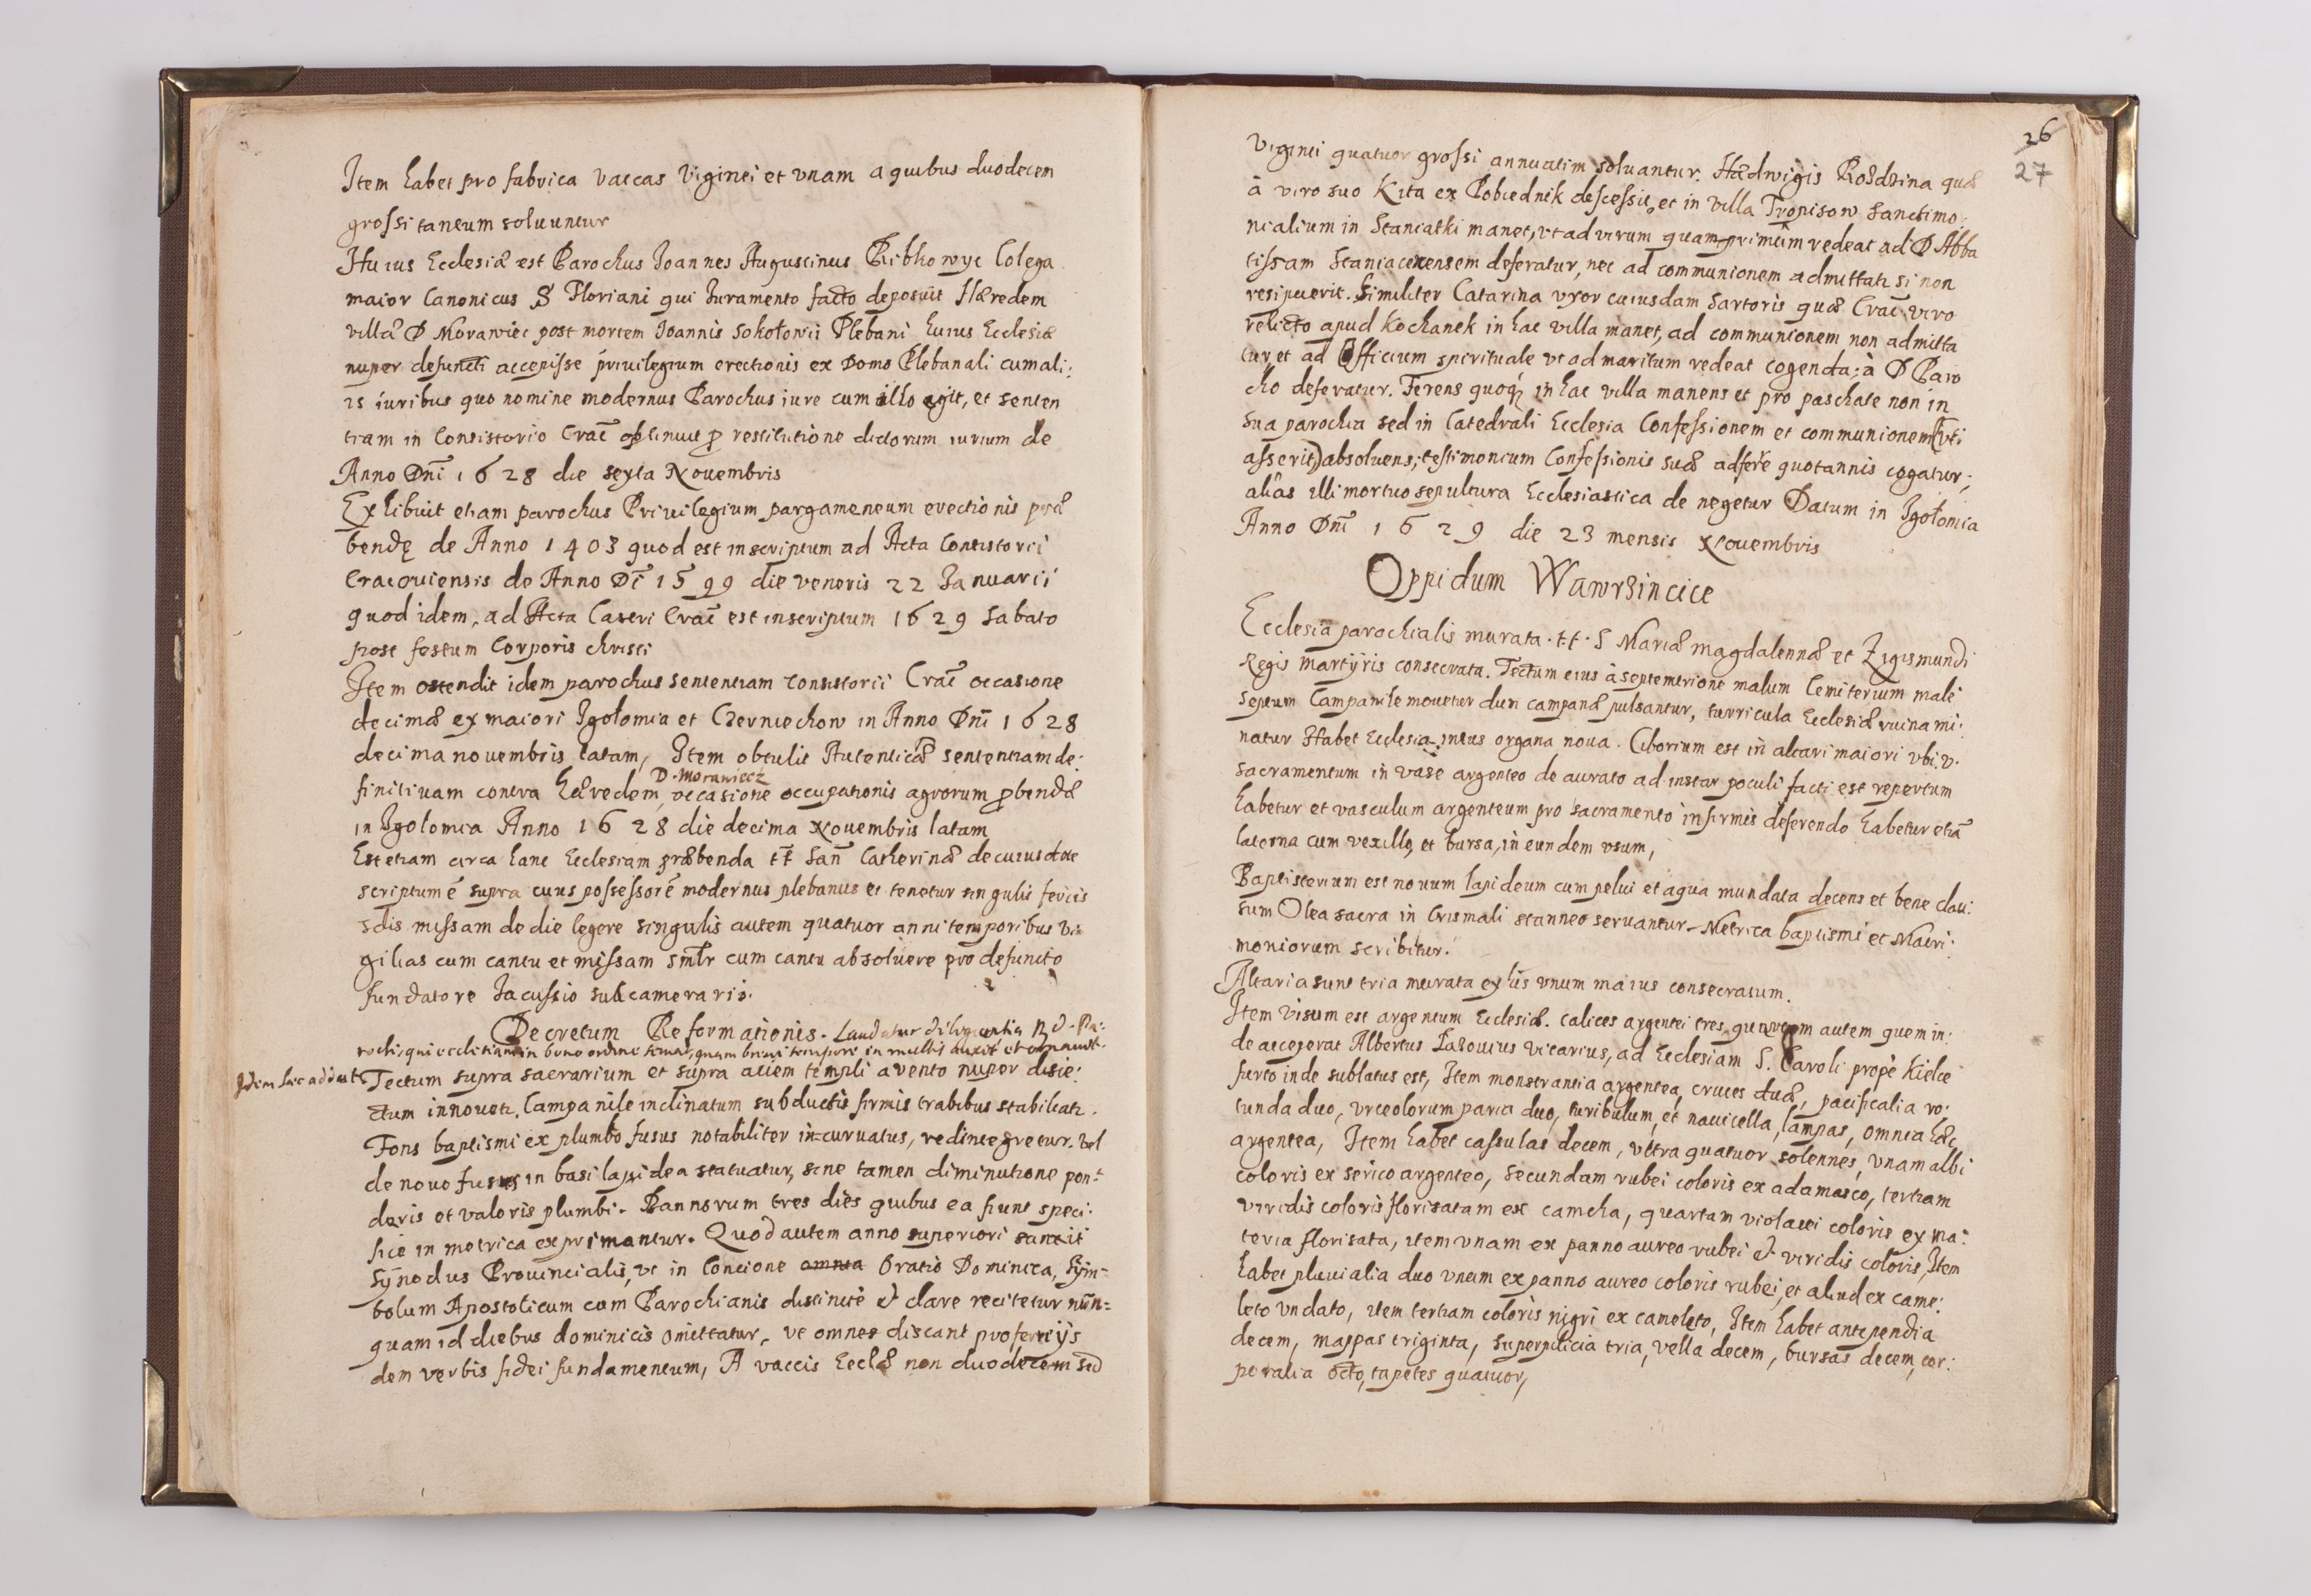 Item habet pro fabrica vaccas viginti et vnam a quibus duodecem
grossi tantum soluuntur
Huius Ecclesiæ est Parochus Joannes Augustinus Colega
maior Canonicus S Floriani qui Iuramento facto deposuit Hæredem
villæ D Morawiec post mortem Joannis Sokołowii Plebani huius Ecclesiæ
nuper defuncti accepisse priuilegium erectionis ex Domo Plebanali cum ali:
is iuribus quo nomine modernus Parochus iure cum illo egit, et senten
tiam in Consistorio Crac̄ obtinuit ꝓ restitutione dictorum iurium de
Anno Dn̄i 1628 die sexta Nouembris
Exhibuit etiam parochus Priuilegium pargameneum erectionis præ
bendę de Anno 1403 quod est inscriptum ad Acta Consistorii
Cracouiensis de Anno Dī 1599 die veneris 22 Januarii
quod idem, ad Acta Castri Crac̄ est inscriptum 1629 Sabato
post festum Corporis christi
Item ostendit idem parochus sententiam Consistorii Crac̄ occasione
decimæ ex maiori Igołomia et Czerniechow in Anno Dn̄i 1628
decima nouembris latam, Item obtulit Autenticā sententiam de:
finitiuam contra Hæredem, D. Morawiecz occasione occupationis agrorum ꝓbendæ
in Igołomia Anno 1628 die decima Nouembris latam
Est etiam circa hanc Ecclesiam præbenda tt̄ San̄ Catherinæ de cuius dote
scriptum ē supra cuius possessorē modernus plebanus et tenetur singulis feriis
2dis missam de die legere singulis autem quatuor anni temporibus vi
gilias cum cantu et missam sml̄r cum cantu absoluere pro defuncto
fundatore Jacussio subcamerario.
Decretum Reformationis. Laudatur diligentia R d. Pa:
rochi, qui ecclesiam in bono ordine tenet, quam breui tempore in multis auxit et ornauit.
Tectum supra sacrarium et supra aciem templi a vento nuper disie:
ctum innouetr. Campanile inclinatum subductis firmis trabibus stabiliatr.
Fons baptismi ex plumbo fusus notabiliter incuruatus, redintegretur. vel
de nouo fusus in basi lapidea statuatur, sine tamen diminutione pon:
deris et valoris plumbi. Bannorum tres dies quibus ea fiunt speci:
fice in metrica exprimantur. Quod autem anno superiori sanxit
Synodus Prouincialis, vt in Concione omnia Oratio Dominica, Sym=
bolum Apostolicum cum Parochianis distincte & clare recitetur nun=
quam id diebus dominicis omittatur, vt omnes discant proferre ijs
dem verbis fidei fundamentum, A vaccis Eccl̄æ non duodecem sed
26
27
viginti quatuor grossi annuatim soluantur. Hædwigis Rożdzina quæ
à viro suo Kita ex Pobiednik descessit, et in villa Tropisow Sanctimo:
nialium in Staniatki manet, vt ad virum quamprimum redeat ad D Abba
tissam Staniacensem deferatur, nec ad communionem admittatr si non
resipuerit. Similiter Catarina vxor cuiusdam Sartoris quæ Crac̄ viro
relicto apud Kochanek in hac villa manet, ad communionem non admitta
tur, et ad Officium spirituale vt ad maritum redeat cogenda; à D Paro
cho deferatur. Ferens quoq; in hac villa manens et pro paschate non in
sua parochia sed in Catedrali Ecclesia Confessionem et communionem (vti
asserit) absoluens; testimonium Confessionis suæ adferre quotannis cogatur;
aliâs illi mortuo sepultura Ecclesiastica de negetur Datum in Igołomia
Anno Dn̄i 1629 die 23 mensis Nouembris
Oppidum Wawrzincice
Ecclesia parochialis murata. t.t. S Mariæ magdalennæ et Zigismundi
Regis martyris consecrata. Tectum eius à septemtrione malum Cemiterium male
septum Campanile mouetur dum campanæ pulsantur, turricula Ecclesiæ ruina mi:
natur Habet Ecclesia intus organa noua. Ciborium est in altari maiori vbi v.
Sacramentum in vase argenteo de aurato ad instar poculi facti est repertum
habetur et vasculum argenteum pro Sacramento infirmis deferendo habetur etiā
laterna cum vexillo, et bursa, in eundem vsum,
Baptisterium est nouum lapideum cum pelui et aqua mundata decens et bene clau:
sum Olea sacra in Crismali stanneo seruantur. Metrica baptismi et Matri:
moniorum scribitur.
Altaria sunt tria murata ex his vnum maius consecratum.
Item visum est argentum Ecclesiæ. Calices argentei tres, autem quem in:
de acceperat Albertus vicarius, ad Ecclesiam S. Caroli prope Kielce
furto inde sublatus est, Item monstrantia argentea, cruces duæ, pacificalia ro:
tunda duo, vrceolorum paria duo, turibulum, et nauicella, lampas, omnia hæc
argentea, Item habet cassulas decem, vltra quatuor solennes, vnam albi
coloris ex serico argenteo, Secundam rubei coloris ex adamasco, tertiam
viridis coloris florisatam ex camcha, quartam violacei coloris ex ma:
teria florisata, item vnam ex panno aureo rubei & viridis coloris, Item
habet pluuialia duo vnum ex panno aureo coloris rubei, et aliud ex came:
leto vndato, item tertiam coloris nigri ex cameleto, Item habet antependia
decem, mappas triginta, superpilicia tria, vella decem, bursas decem, cor:
poralia octo, tapetes quatuor,